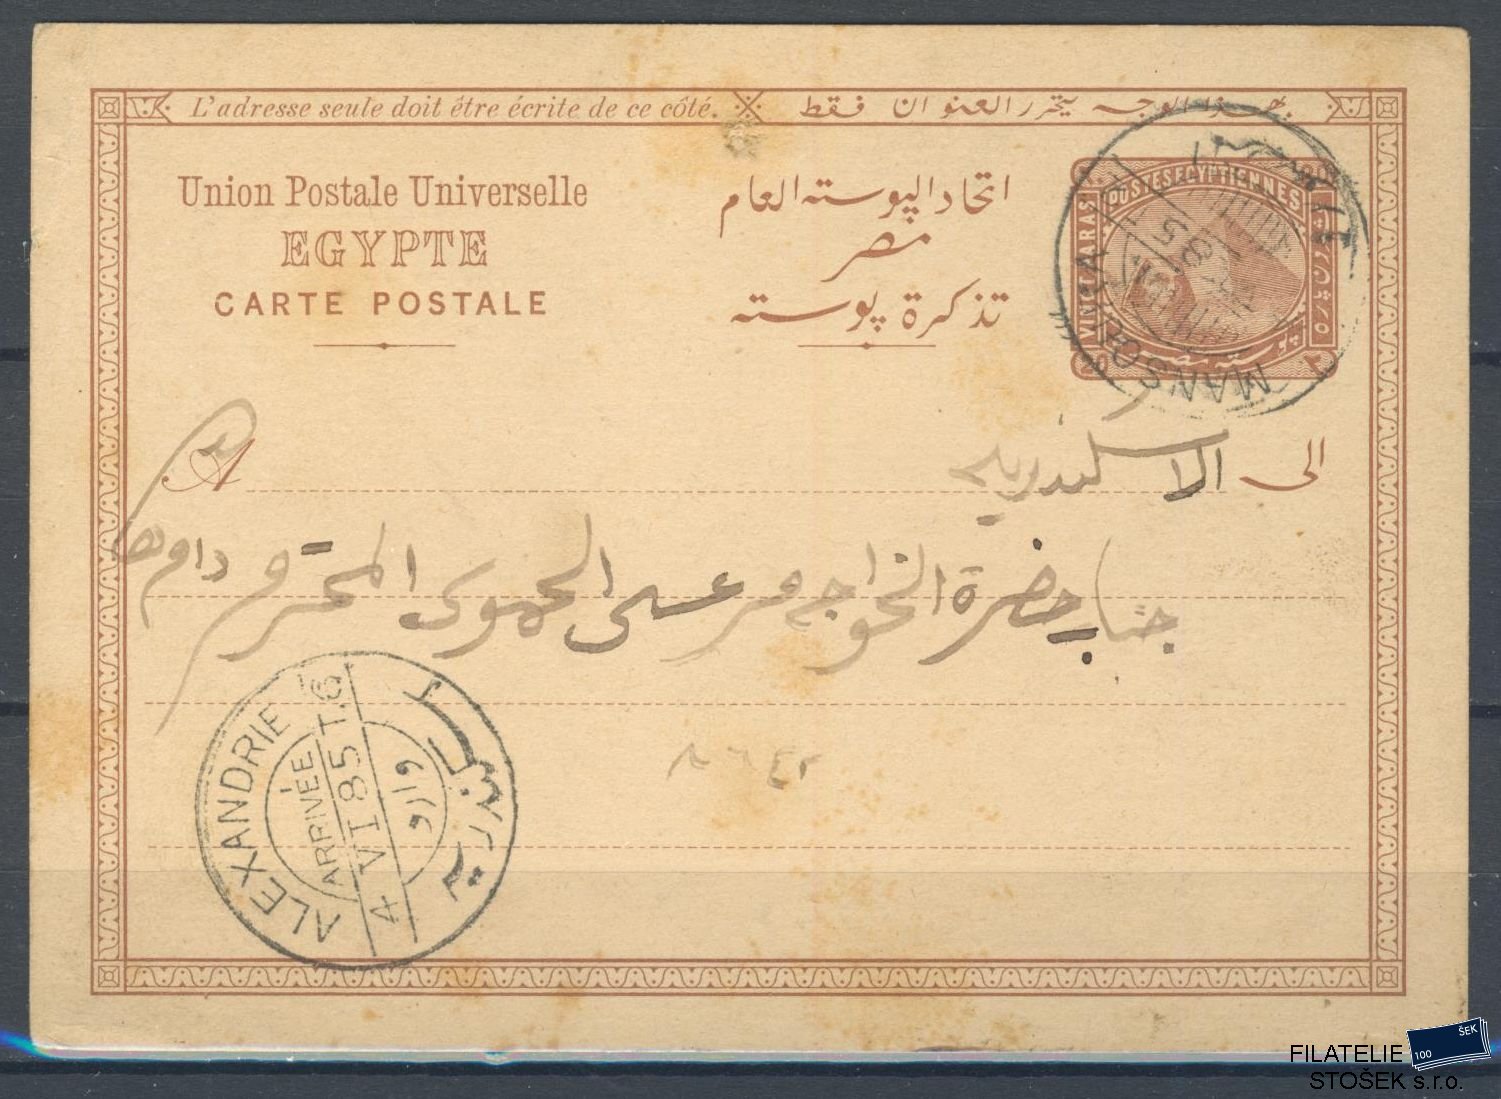 L'adresse seule doit être écrite de ce côté.
بهذا الوجه يتحرر العنوان فقط
Union Postale Universelle
اتحاد البوسته العام
EGYPTE
مصر
CARTE POSTALE
تذكرة بوسته
POSTES EGYPTIENNES
VINGT PARAS
بوسته مصر
MANSOURA
A
الى
الاسكندريه
جناب حضرة الخواجه مرعى الحموى المحترم دام
ALEXANDRIE
ARRIVÉE
4 VI 85 T.6
٨٦٤٢
FILATELIE
STOŠEK s.r.o.
100
ŠEK